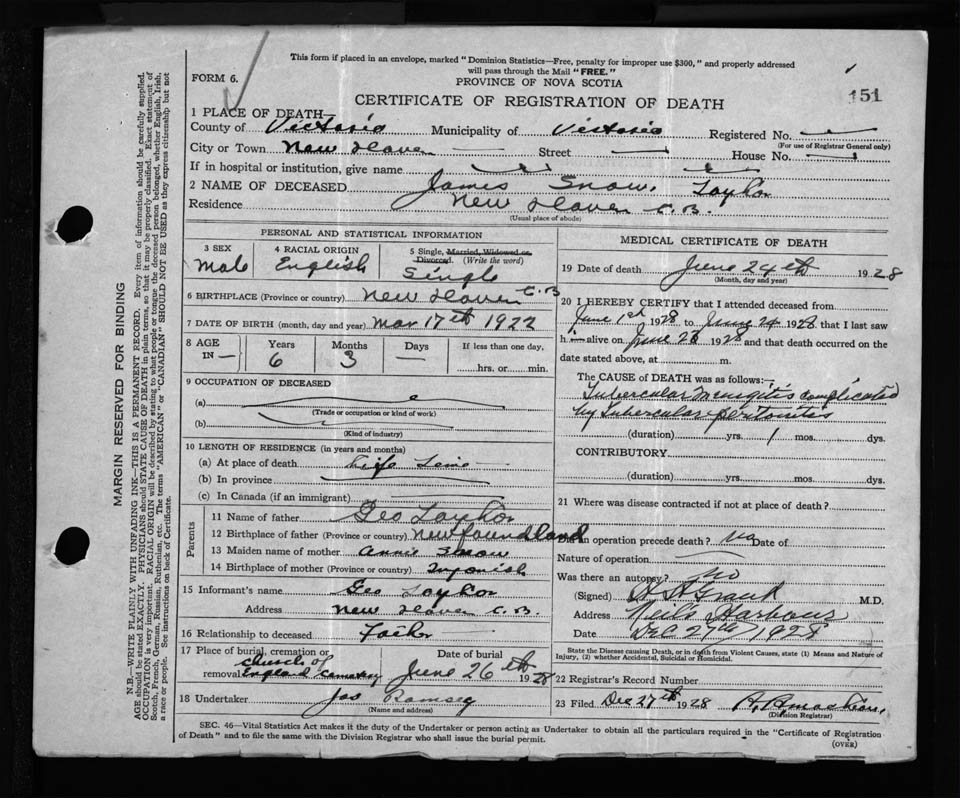 This form if placed in an envelope, marked "Dominion Statistics—Free, penalty for improper use $300," and properly addressed
will pass through the Mail "FREE."
FORM 6.
PROVINCE OF NOVA SCOTIA
151
CERTIFICATE OF REGISTRATION OF DEATH
1 PLACE OF DEATH
County of Victoria Municipality of Victoria Registered No.
(For use of Registrar General only)
City or Town New Haven Street House No.
If in hospital or institution, give name
2 NAME OF DECEASED James Snow Taylor
Residence New Haven C.B.
(Usual place of abode)
PERSONAL AND STATISTICAL INFORMATION
3 SEX 4 RACIAL ORIGIN 5 Single, Married, Widowed or Divorced. (Write the word)
Male English Single
6 BIRTHPLACE (Province or country) New Haven C.B
7 DATE OF BIRTH (month, day and year) Mar 17th 1922
8 AGE IN— Years Months Days If less than one day,
6 3 — hrs. or min.
9 OCCUPATION OF DECEASED
(a)
(Trade or occupation or kind of work)
(b)
(Kind of industry)
10 LENGTH OF RESIDENCE (in years and months)
(a) At place of death Life Time
(b) In province
(c) In Canada (if an immigrant)
Parents
11 Name of father Geo Taylor
12 Birthplace of father (Province or country) Newfoundland
13 Maiden name of mother Annie Snow
14 Birthplace of mother (Province or country) Ingonish
15 Informant's name Geo Taylor
Address New Haven C.B.
16 Relationship to deceased Father
17 Place of burial, cremation or removal Church of England Cemetery
Date of burial June 26th 1928
18 Undertaker Jas Ramsey
(Name and address)
MEDICAL CERTIFICATE OF DEATH
19 Date of death June 24th 1928
(Month, day and year)
20 I HEREBY CERTIFY that I attended deceased from
June 1st 1928 to June 24 1928 that I last saw
h im alive on June 23 1928 and that death occurred on the
date stated above, at m.
The CAUSE of DEATH was as follows:—
Tubercular Meningitis complicated
by Tubercular peritonitis
(duration) yrs. 1 mos. dys.
CONTRIBUTORY
(duration) yrs. mos. dys.
21 Where was disease contracted if not at place of death?
Did an operation precede death? No Date of
Nature of operation
Was there an autopsy? No
(Signed) M.D.
Address Neil's Harbour
Date Dec 27th 1928
State the Disease causing Death, or in death from Violent Causes, state (1) Means and Nature of
Injury, (2) whether Accidental, Suicidal or Homicidal.
22 Registrar's Record Number
23 Filed Dec 27th 1928
(Division Registrar)
SEC. 46—Vital Statistics Act makes it the duty of the Undertaker or person acting as Undertaker to obtain all the particulars required in the "Certificate of Registration
of Death" and to file the same with the Division Registrar who shall issue the burial permit.
(OVER)
MARGIN RESERVED FOR BINDING
N.B.—WRITE PLAINLY WITH UNFADING INK—THIS IS A PERMANENT RECORD. Every item of information should be carefully supplied.
AGE should be stated EXACTLY. PHYSICIANS should STATE CAUSE OF DEATH in plain terms, so that it may be properly classified. Exact statement of
OCCUPATION is very important. RACIAL ORIGIN will be described by stating to what people or tongue the deceased person belonged, whether English, Irish,
Scotch, French, German, Russian, Ruthenian, etc. The terms "AMERICAN" or "CANADIAN" SHOULD NOT BE USED as they express citizenship but not
a race or people. See instructions on back of Certificate.